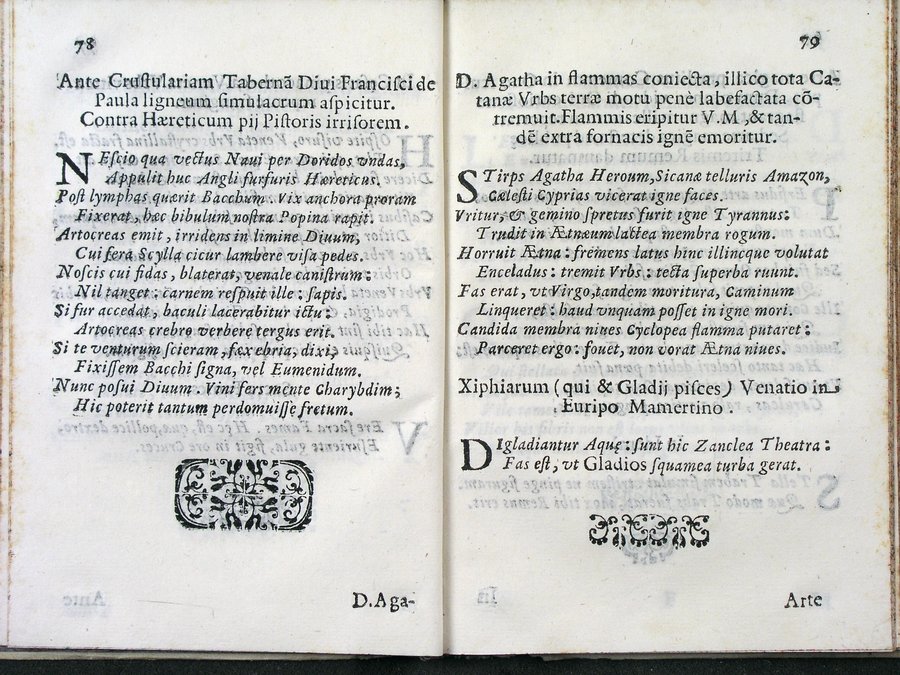 78
Ante Crustulariam Tabernã Diui Francisci de
Paula ligneum simulacrum aspicitur.
Contra Hæreticum pij Pistoris irrisorem.
NEscio qua vectus Naui per Doridos vndas,
Appulit huc Angli furfuris Hæreticus.
Post lymphas quærit Bacchum. Vix anchora proram
Fixerat, hæc bibulum nostra Popina rapit.
Artocreas emit, irridens in limine Diuum,
Cui fera Scylla cicur lambere visa pedes.
Noscis cui fidas, blaterat, venale canistrum:
Nil tanget: carnem respuit ille: sapis.
Si fur accedat, baculi lacerabitur ictu:
Artocreas crebro verbere tergus erit.
Si te venturum scieram, fæx ebria, dixi,
Fixissem Bacchi signa, vel Eumenidum.
Nunc posui Diuum. Vini fers mente Charybdim;
Hic poterit tantum perdomuisse fretum.
D.Aga-
79
D. Agatha in flammas coniecta, illico tota Ca-
tanæ Vrbs terræ motu penè labefactata cõ-
tremuit. Flammis eripitur V.M, & tan-
dẽ extra fornacis ignẽ emoritur.
STirps Agatha Heroum, Sicanæ telluris Amazon,
Cælesti Cyprias vicerat igne faces.
Vritur, & gemino spretus furit igne Tyrannus:
Trudit in Ætnæum lactea membra rogum.
Horruit Ætna: fremens latus hinc illincque volutat
Enceladus: tremit Vrbs: tecta superba ruunt.
Fas erat, vt Virgo, tandem moritura, Caminum
Linqueret: haud vnquam posset in igne mori.
Candida membra niues Cyclopea flamma putaret:
Parceret ergo: fouet, non vorat Ætna niues.
Xiphiarum (qui & Gladij pisces) Venatio in
Euripo Mamertino.
DIgladiantur Aquę: sunt hic Zanclea Theatra:
Fas est, vt Gladios squamea turba gerat.
Arte